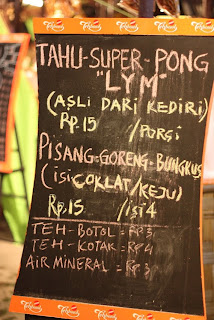 TAHU-SUPER-PONG
"LYM"
(ASLI DARI KEDIRI)
Rp.15 /PORSI
PISANG-GORENG-BUNGKUS
(isi COKLAT/KEJU)
Rp.15 /isi 4
TEH-BOTOL = Rp 3
TEH-KOTAK = Rp 4
AIR MINERAL = Rp 3